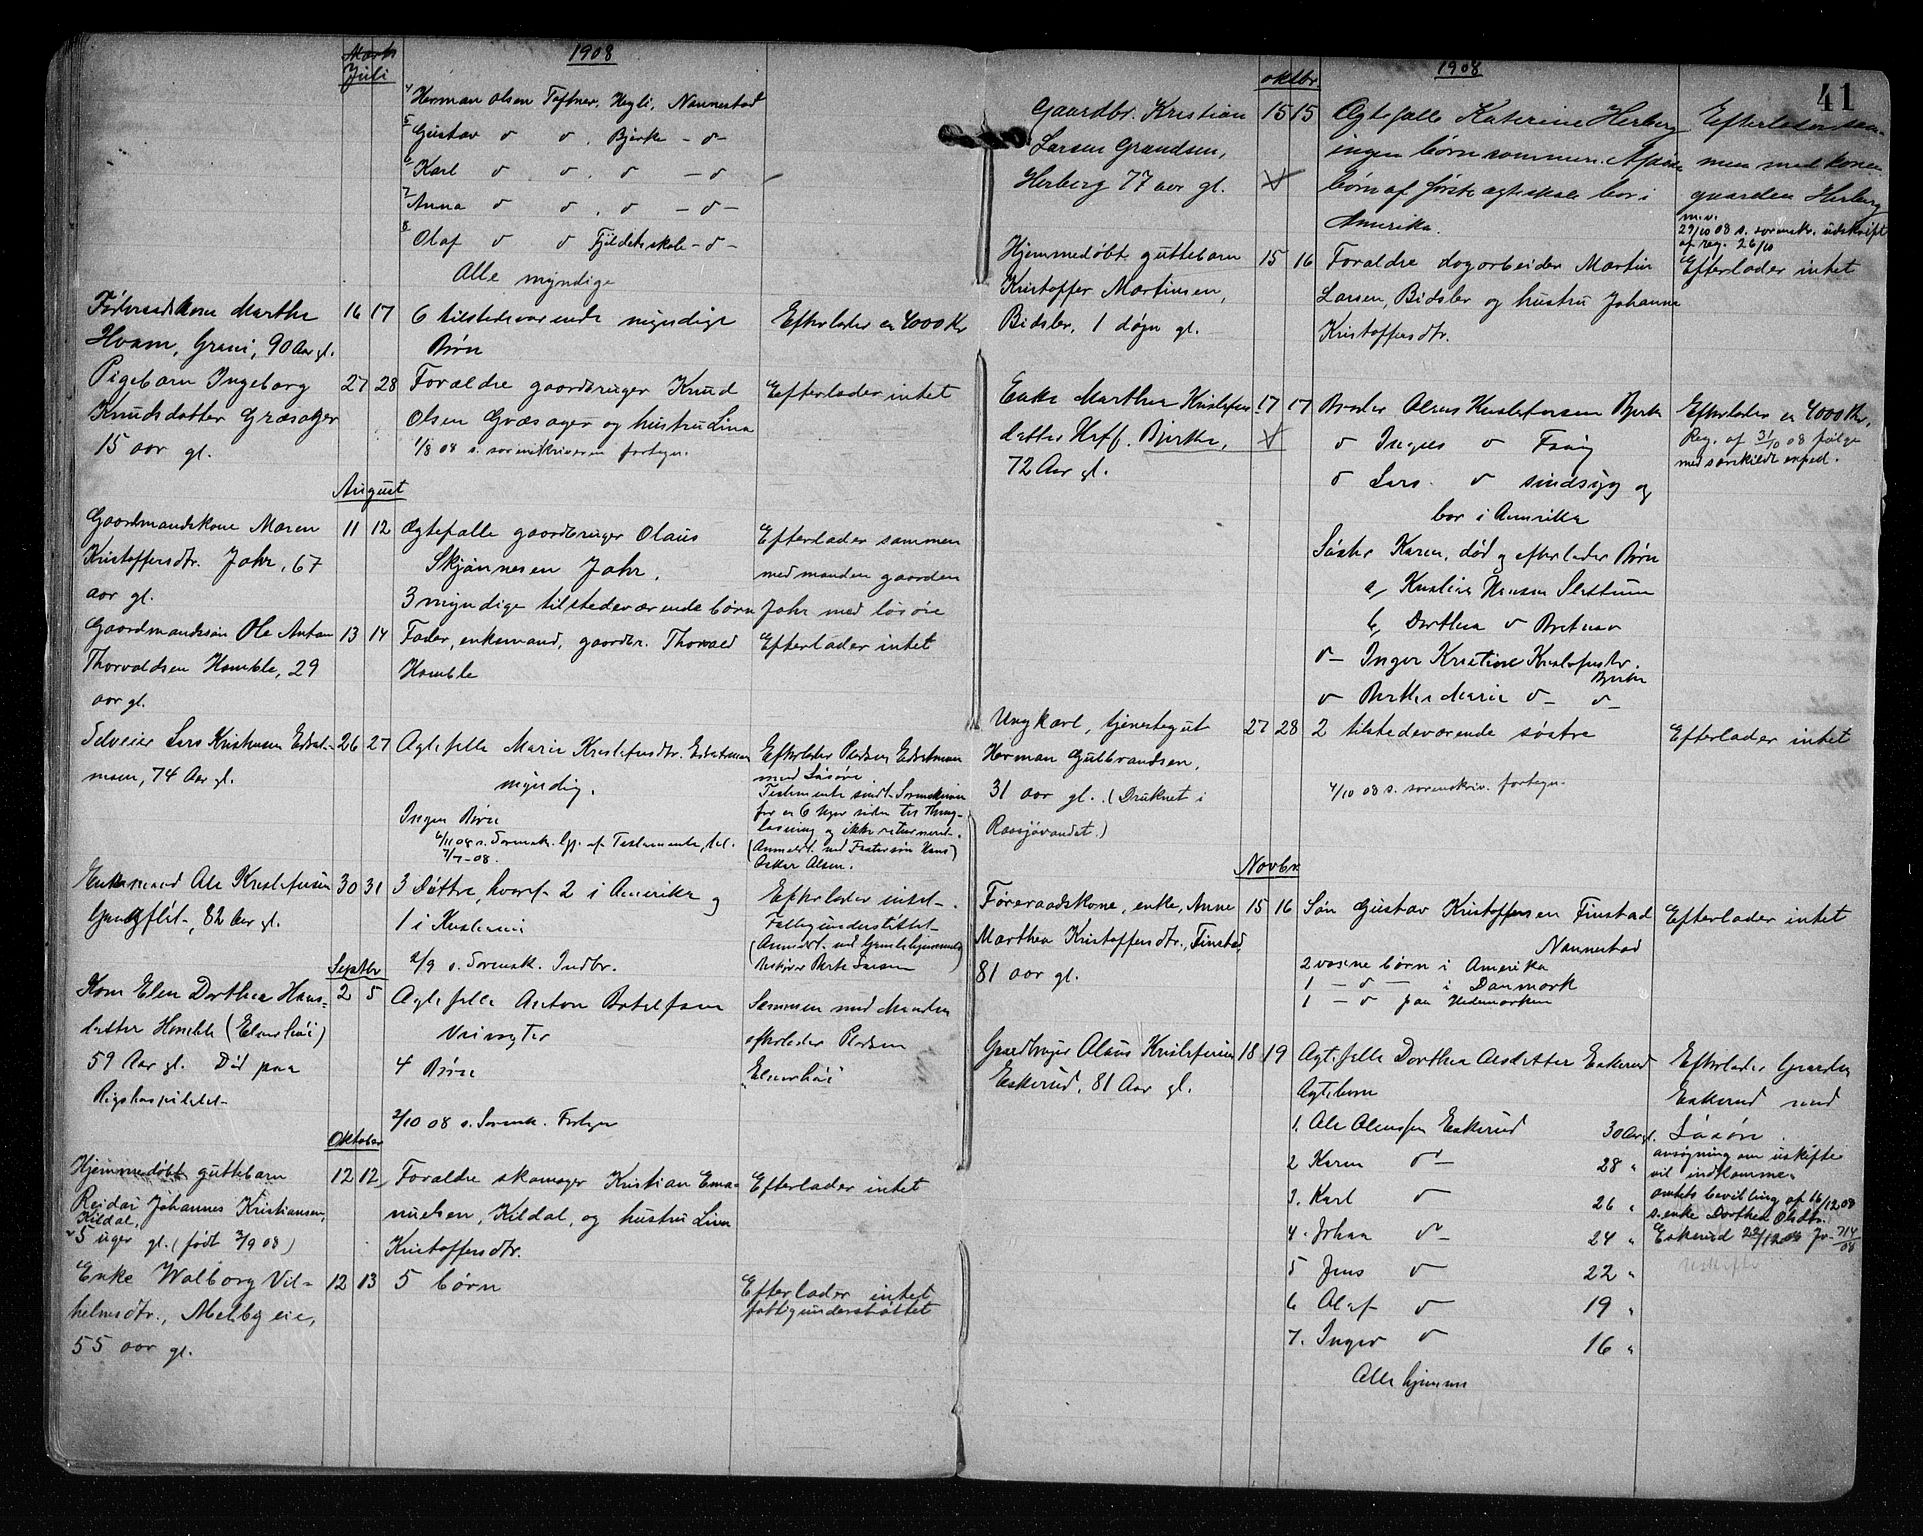 1908
Marts
Juli
4 Herman Olsen Toftner, Hegli, Nannestad
5 Gustav d d , Bjerke - d -
6 Karl d d , d - d
7 Anna d d , d - d -
8 Olaf d d Fjeldets skole - d -
Alle myndige
Føderaadskone Marthe
Hvam, Grani, 90 Aar gl.
16 17
6 tilstedeværende myndige
Børn
Efterlader ca 4000 Kr
Pigebarn Ingeborg
Knudsdatter Græsager
15 aar gl.
27 28
Forældre gaardbruger Knud
Olsen Græsager og hustru Lina
1/8 08 s. sorenskriveren fortegn.
Efterlader intet
August
Gaardmandskone Maren
Kristoffersdtr. Jahr, 67
aar gl.
11 12
Ægtefælle gaardbruger Olaus
Skjønnesen Jahr.
3 myndige tilstedeværende børn
Efterlader sammen
med manden gaarden
Jahr med løsøre
Gaardmandssøn Ole Anton
Thorvaldsen Homble, 29
aar gl.
13 14
Fader, enkemand, gaardbr. Thorvald
Homble
Efterlader intet
Selveier Lars Kristiansen
74 Aar gl.
26 27
Ægtefælle Marie Kristofersdtr.
myndig.
Ingen Børn
6/11 08 s. Sorensk. Gp. af Testamente, tel.
7/7-08.
Efterlader Pladsen
med Løsøre
Testamente sendt Sorenskriver
for ca 6 Uger siden til Thing-
læsning og ikke returneret.
(Anmeldt ved Fostersøn Hans
Oskar Olsen.
Enkemand Ole Kristofersen
82 Aar gl.
30 31
3 Døttre, hvoraf 2 i Amerika og
1 i Kristiania
2/9 s. Sorensk. Indbr.
Efterlader intet.
Fattigunderstøttet
Septbr
Kone Elen Dorthea Hans-
datter Homble (Elverhøi)
59 Aar gl. Død paa
Rigshospitalet
2 5
Ægtefælle Anton
4 Børn
2/10 08 s. Sorensk. Fortegn
Sammen med Manden
efterlader Pladsen
"Elverhøi"
Oktober
Hjemmedøbt guttebarn
Reidar Johannes Kristiansen,
Kildal,
5 uger gl. (født 2/9 08)
12 12
Forældre skomager Kristian Ema-
nuelsen, Kildal, og hustru Lina
Kristoffersdtr.
Efterlader intet
Enke Walborg Vil-
helmsdtr., Melby eie,
55 aar gl.
12 13
5 børn
Efterlader intet
fattigunderstøttet
41
oktbr.
1908
Gaardbr. Kristian
Larsen Grandsen,
Herberg 77 aar gl.
15 15
Ægtefælle Katerine Herberg
ingen børn sammen. Afdøde
børn af første ægteskab bor i
Amerika.
Efterlader sam-
men med konen
gaarden Herberg
m.v.
29/10 08 s. sorenskr. udskrift
af reg. 26/10
Hjemmedøbt guttebarn
Kristoffer Martinsen,
Bidsler, 1 døgn gl.
15 16
Forældre dagarbeider Martin
Larsen, Bidsler og hustru Johanne
Kristoffersdtr.
Efterlader intet
Enke Marthea Kristofers-
datter Hoff. Bjerke,
72 Aar gl.
17 17
Broder Olaus Kristofersen Bjerke
d d
d Lars d sindssyg og
bor i Amerika
Søster Karen, død og efterlader Børn
a, Kristine Hansen Slettum
b, Dorthea d
d - Inger Kristine Kristofersdtr.
Bjerke
d Berthe Marie d - d -
Efterlader ca 4000 Kr.
Reg. af 31/10 08 følge
med særskildt exped.
Ungkarl, tjenestegut
Herman Gulbrandsen,
31 aar gl. (Druknet i
Raasjøvandet.)
27 28
2 tilstedeværende søstre
4/10 08 s. sorenskriv. fortegn.
Efterlader intet
Novbr.
Føreraadskone, enke, Anne
Marthea Kristoffersdtr., Finstad,
81 aar gl.
15 16
Søn Gustav Kristoffersen Finstad
Nannestad
2 voxne børn i Amerika
1 - d - i Danmark
1 - d paa Hedemarken
Efterlader intet
Gaardbruger Olaus Kristofersen
Eskerud, 81 Aar gl.
18 19
Ægtefælle Dorthea Olsdatter Eskerud
Ægtebørn
1. Ole Olaussen Eskerud 30 Aar gl.
2 Karen d - 28 "
3. Karl d 26 "
4. Johan d - 24 "
5 Jens d 22 "
6 Olaf d 19 "
7. Inger d 16 "
Alle hjemme
Efterlader Gaarden
Eskerud med
Løsøre.
ansøgning om uskifte
vil indkomme.
amtets bevilling af 16/12 08
s. enke Dorthea Olsdtr.
Eskerud 22/12 08 Jr. 714/08
Uskifte